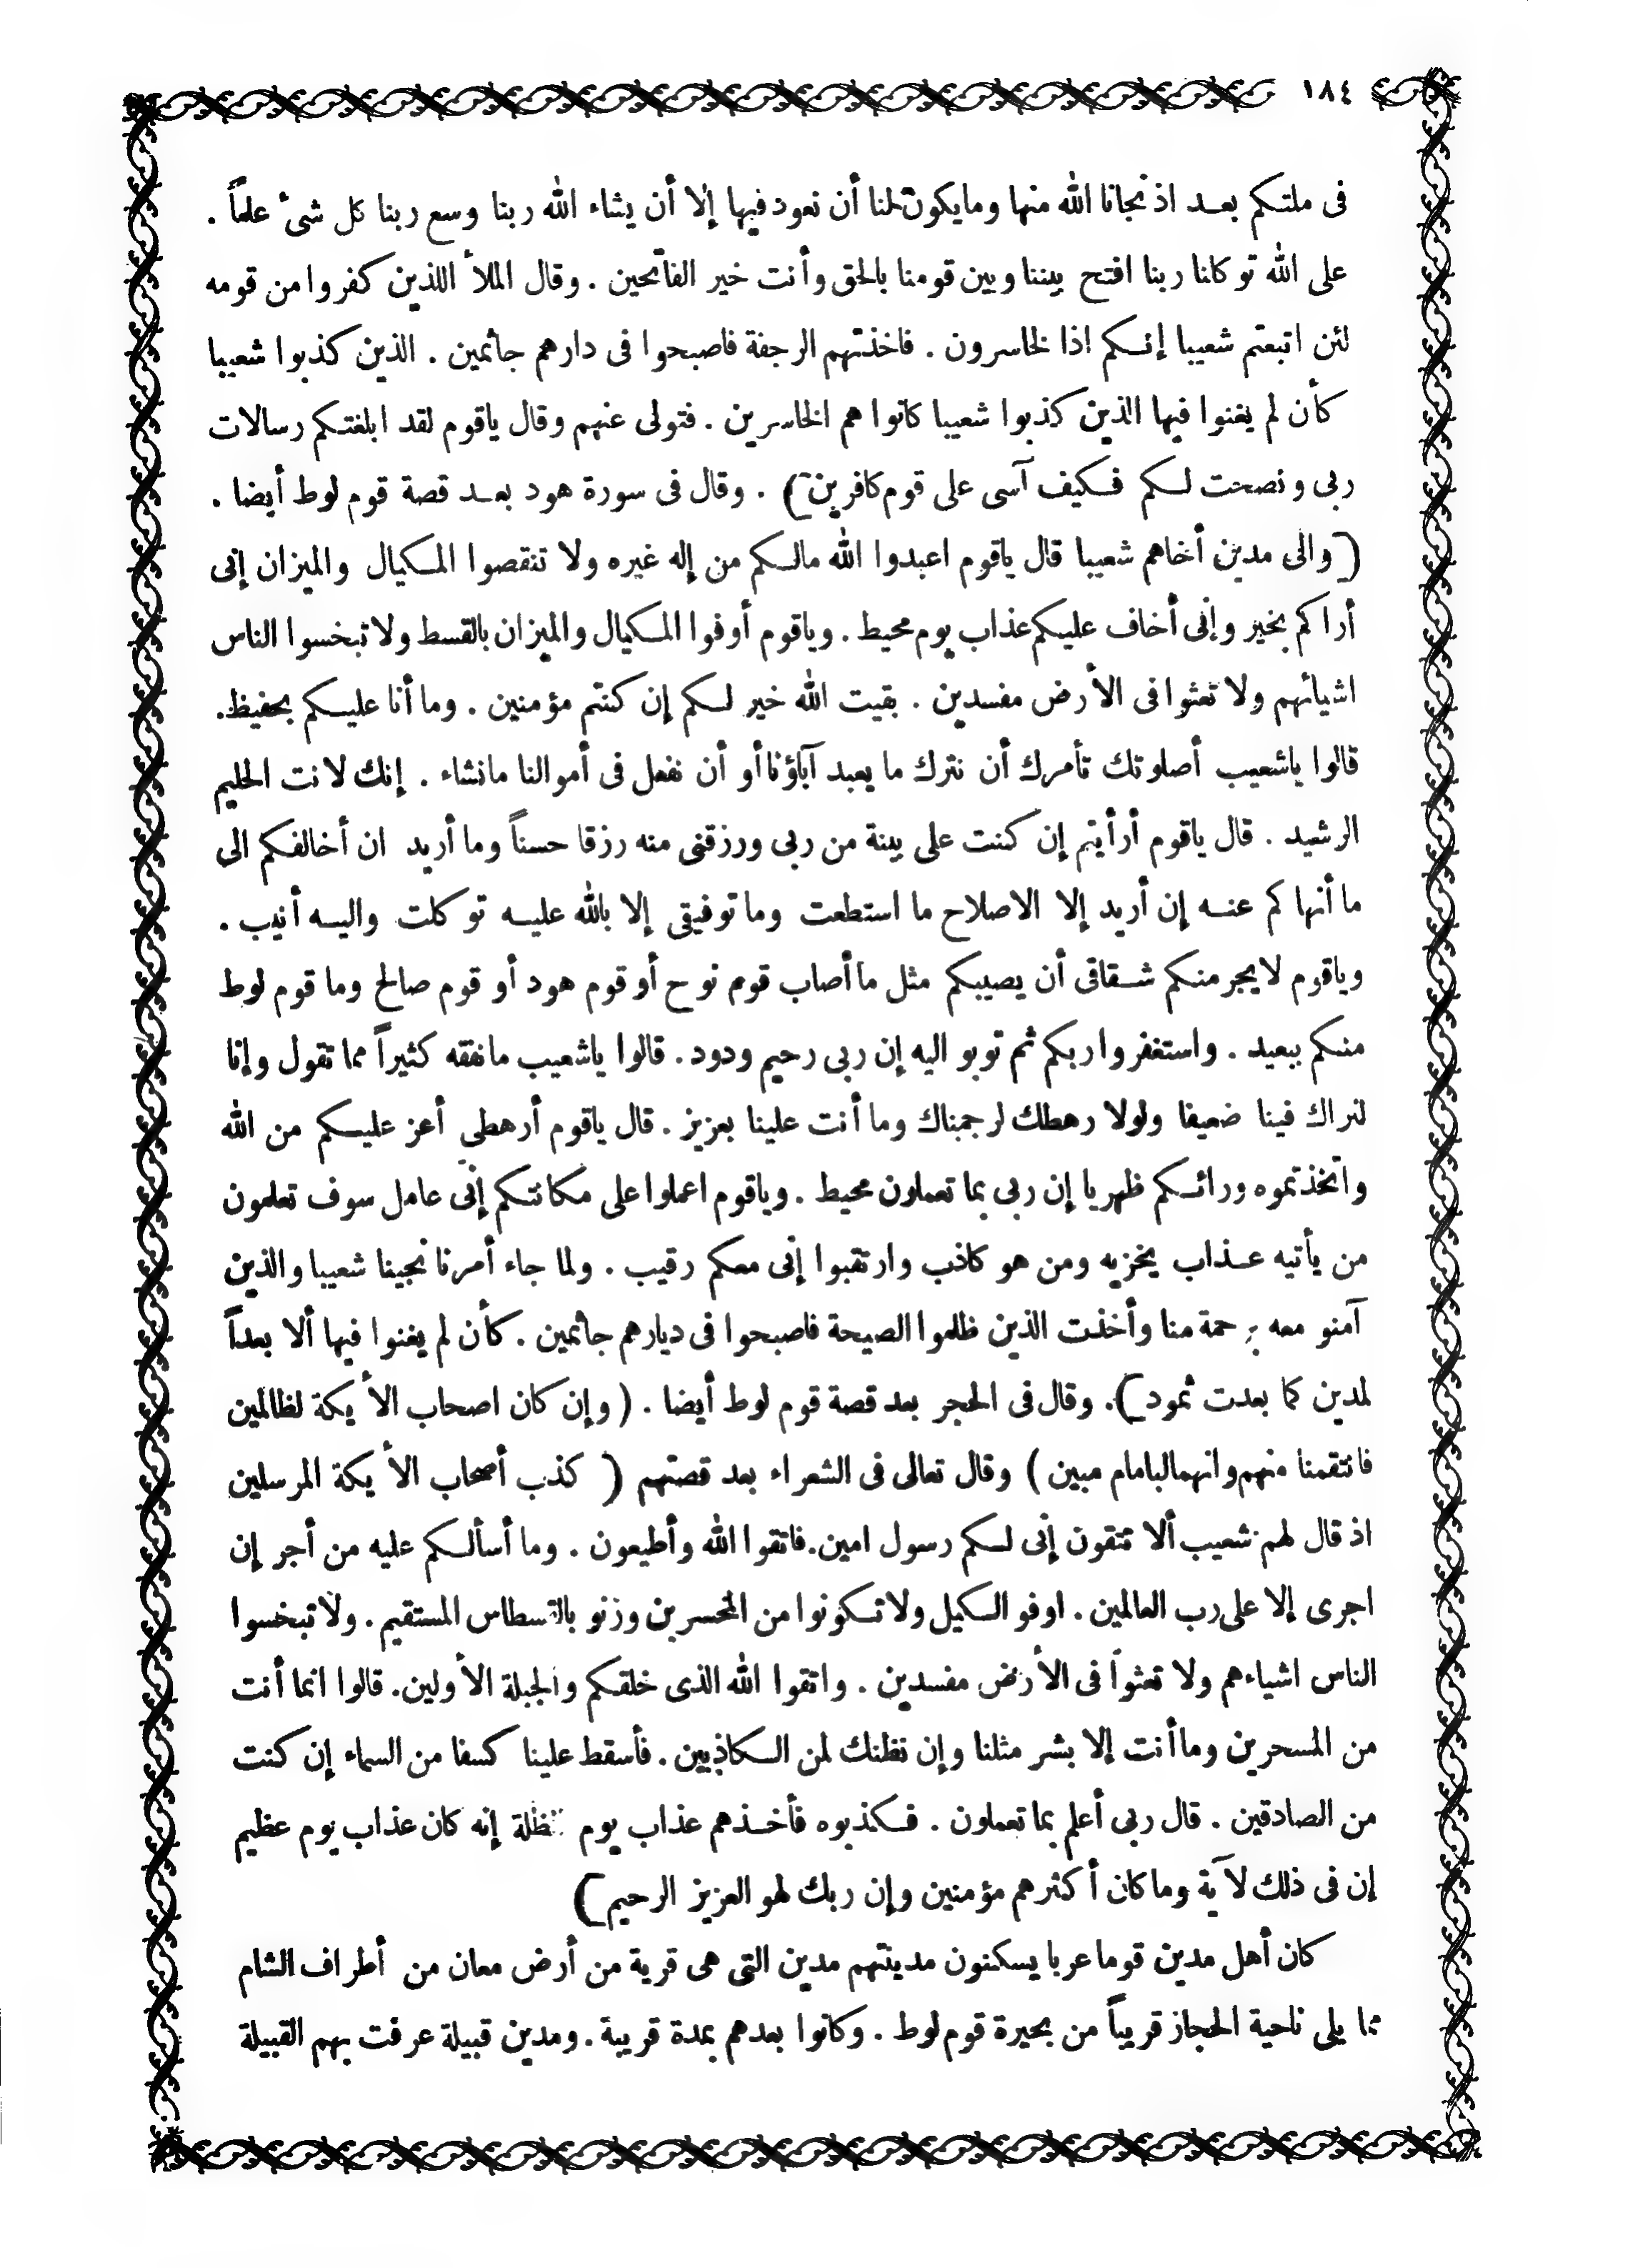 ١٨٤
فى ملتكم بعد اذ نجانا الله منها وما يكون لنا أن نعود فيها إلا أن يشاء الله ربنا وسع ربنا كل شىء علماً .
على الله توكلنا ربنا افتح بيننا وبين قومنا بالحق وأنت خير الفاتحين . وقال الملأ اللذين كفروا من قومه
لئن اتبعتم شعيبا إنكم اذا لخاسرون . فاخذتهم الرجفة فاصبحوا فى دارهم جاثمين . الذين كذبوا شعيبا
كأن لم يغنوا فيها الذين كذبوا شعيبا كانوا هم الخاسرين . فتولى عنهم وقال ياقوم لقد ابلغتكم رسالات
ربى ونصحت لكم فكيف آسى على قوم كافرين ) . وقال فى سورة هود بعد قصة قوم لوط أيضا .
( والى مدين أخاهم شعيبا قال ياقوم اعبدوا الله مالكم من إله غيره ولا تنقصوا المكيال والميزان إنى
أراكم بخير وإنى أخاف عليكم عذاب يوم محيط . وياقوم أوفوا المكيال والميزان بالقسط ولا تبخسوا الناس
اشيائهم ولا تعثوا فى الأرض مفسدين . بقيت الله خير لكم إن كنتم مؤمنين . وما أنا عليكم بحفيظ.
قالوا ياشعيب أصلوتك تأمرك أن نترك ما يعبد آباؤنا أو أن نفعل فى أموالنا مانشاء . إنك لانت الحليم
الرشيد . قال ياقوم أرأيتم إن كنت على بينة من ربى ورزقنى منه رزقا حسناً وما أريد ان أخالفكم الى
ما أنهاكم عنه إن أريد إلا الاصلاح ما استطعت وما توفيقى إلا بالله عليه توكلت واليه أنيب .
وياقوم لايجرمنكم شقاقى أن يصيبكم مثل ما أصاب قوم نوح أو قوم هود أو قوم صالح وما قوم لوط
منكم ببعيد . واستغفروا ربكم ثم توبو اليه إن ربى رحيم ودود . قالوا ياشعيب مانفقه كثيراً مما تقول وإنا
لنراك فينا ضعيفا ولولا رهطك لرجمناك وما أنت علينا بعزيز . قال ياقوم أرهطى أعز عليكم من الله
واتخذتموه ورائكم ظهريا إن ربى بما تعملون محيط . وياقوم اعملوا على مكانتكم إنى عامل سوف تعلمون
من يأتيه عذاب يخزيه ومن هو كاذب وارتقبوا إنى معكم رقيب . ولما جاء أمرنا نجينا شعيبا والذين
آمنو معه برحمة منا وأخذت الذين ظلموا الصيحة فاصبحوا فى ديارهم جاثمين . كأن لم يغنوا فيها ألا بعداً
لمدين كما بعدت ثمود ) . وقال فى الحجر بعد قصة قوم لوط أيضا . ( وإن كان اصحاب الأيكة لظالمين
فانتقمنا منهم وانهما لبامام مبين ) وقال تعالى فى الشعراء بعد قصتهم ( كذب أصحاب الأيكة المرسلين
اذ قال لهم شعيب ألا تتقون إنى لكم رسول امين. فاتقوا الله وأطيعون . وما أسألكم عليه من أجر إن
اجرى إلا على رب العالمين . اوفو الكيل ولا تكونوا من المخسرين وزنو بالقسطاس المستقيم . ولا تبخسوا
الناس اشياءهم ولا تعثوا فى الأرض مفسدين . واتقوا الله الذى خلقكم والجبلة الأولين. قالوا انما أنت
من المسحرين وما أنت إلا بشر مثلنا وإن نظنك لمن الكاذبين . فأسقط علينا كسفا من السماء إن كنت
من الصادقين . قال ربى أعلم بما تعملون . فكذبوه فأخذهم عذاب يوم الظلة إنه كان عذاب يوم عظيم
إن فى ذلك لآية وما كان أكثرهم مؤمنين وإن ربك لهو العزيز الرحيم )
كان أهل مدين قوما عربا يسكنون مدينتهم مدين التى هى قرية من أرض معان من أطراف الشام
مما يلى ناحية الحجاز قريباً من بحيرة قوم لوط . وكانوا بعدهم بمدة قريبة . ومدين قبيلة عرفت بهم القبيلة